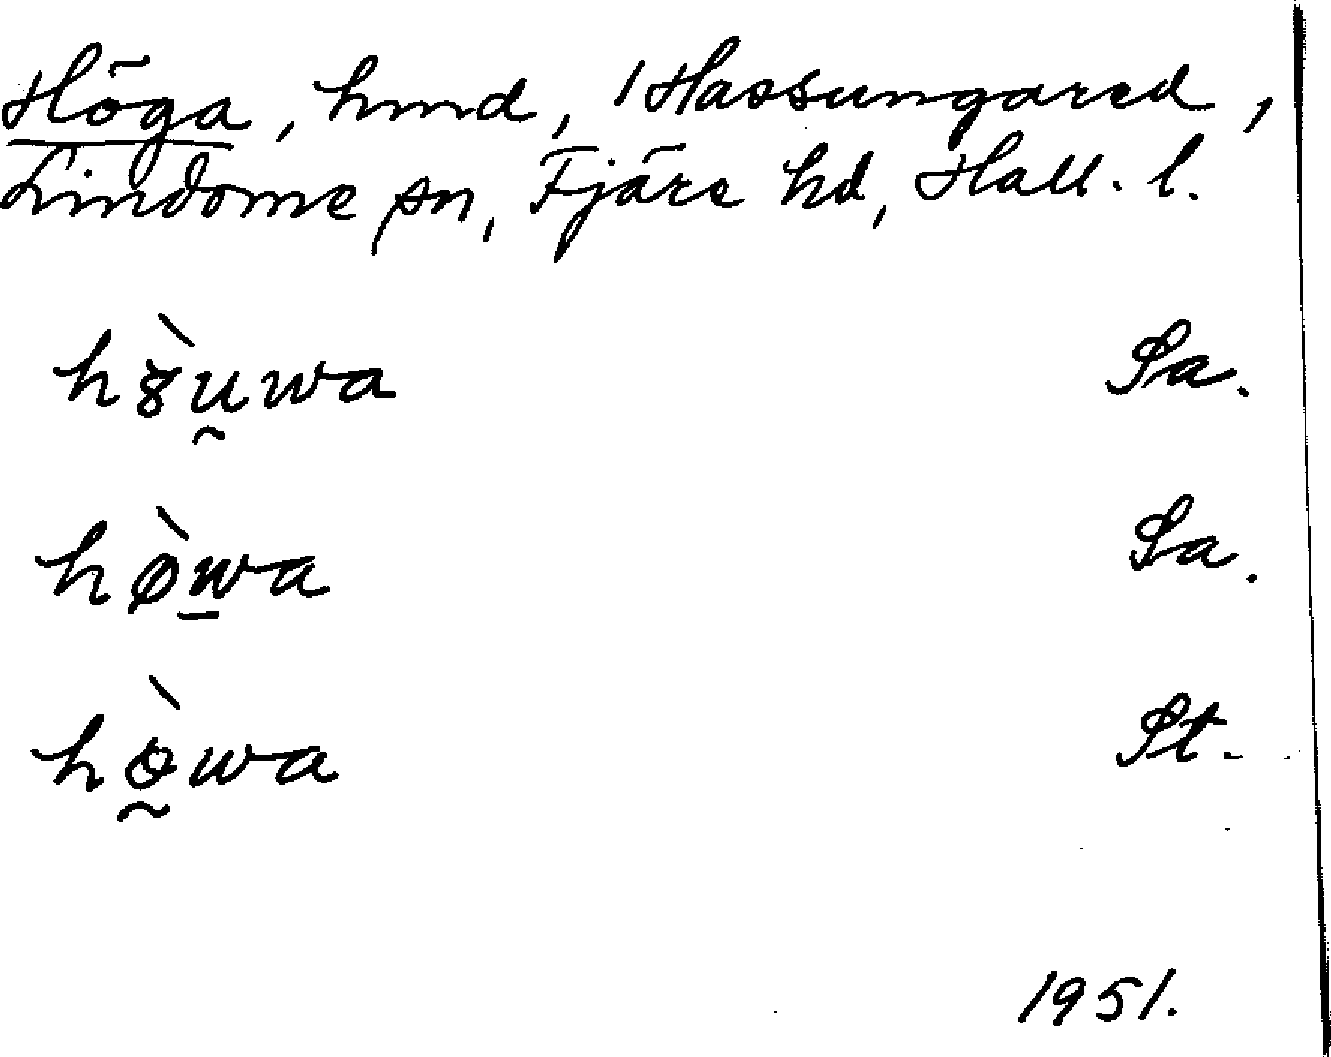 Höga, hmd, 1 Hassungared,
Lindome sn, Fjäre hd, Hall. l.
h8̀ṵwa Sa.
hø̀w̲a Sa.
hò̰wa St.
1951.